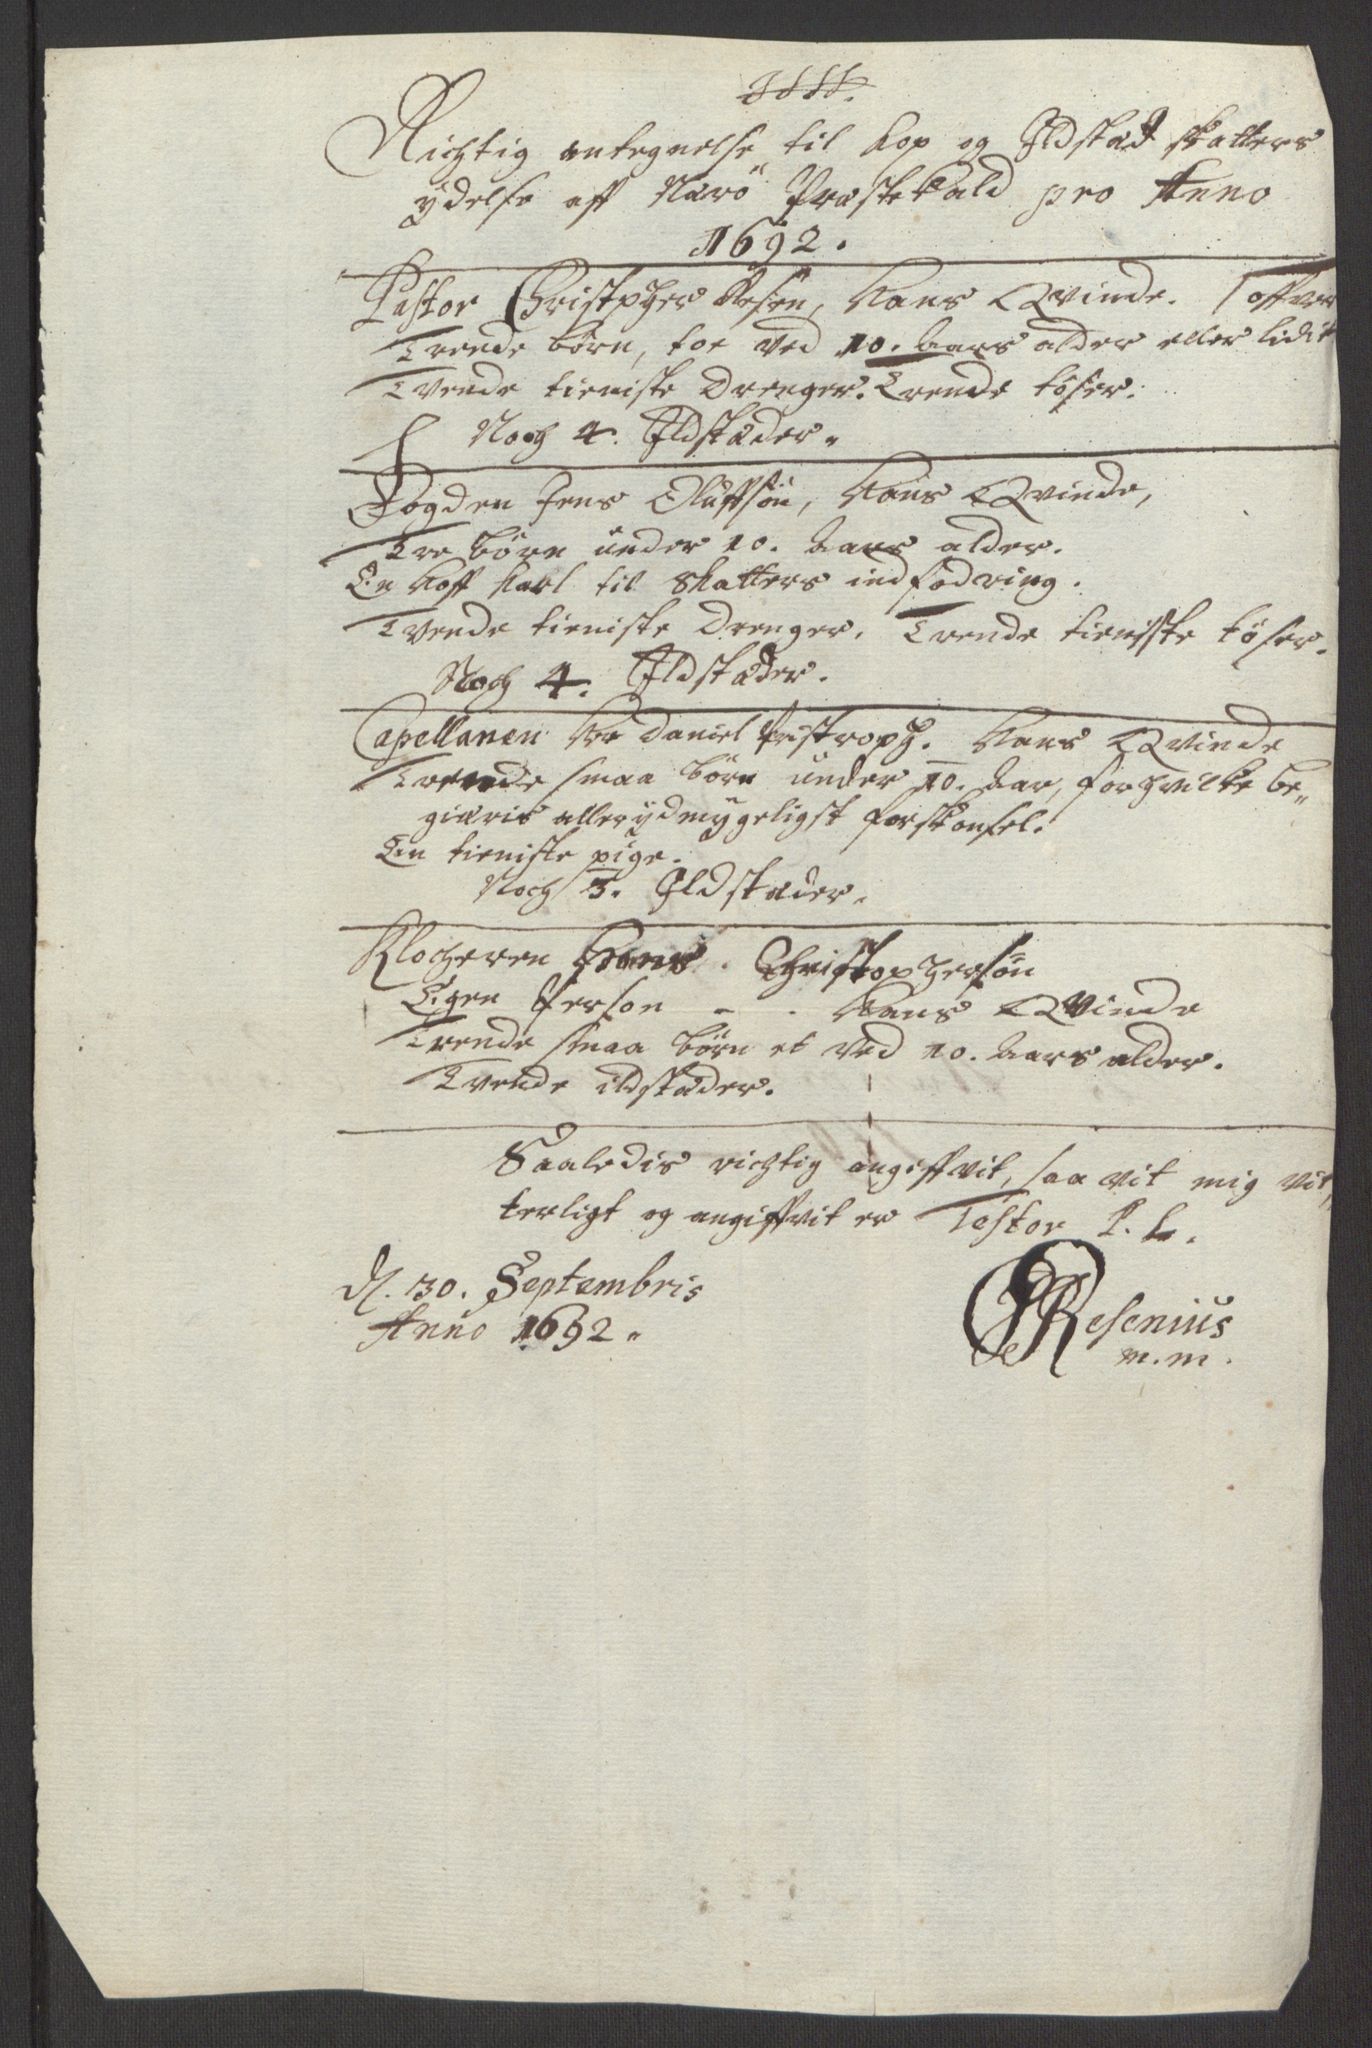 Richtig antegnelse til Kop og Ildstæd skatters
ydelse aff Nærö Præstekald pro Anno
1692.
Pastor Christopher Resen, Hans Qvinde. 
Trende börn, toe ved 10. Aars alder eller lidit
Tvende tieniste Drenger. Trende töser.
Noch 4. Ildstæder.
Fogden Jens Oluffsön, Hans Qvinde,
Tre börn under 10. Aars alder.
En Hoff Karl til Skatters indfodring.
Tvende tieniste Drenger. Trende tieniste töser.
Noch 4. Ildstæder.
Capellanen Her Daniel Bistroph. Hans Qvinde
Trende smaa börn under 10. Aar, for hvilke be„
giæris allerydmygeligst forskonsel.
En tieniste pige.
Noch 3. Ildstæder.
Klocheren Hans Christophersön
Egen Person - . Hans Qvinde
Trende smaa börn et ved 10. Aars alder.
Tvende ildstæder.
Saaledis richtig angiffvit, saa vit mig vit„
terligt og angiffvit er Testor P. L.
d. 30. Septembris
Anno 1692.
Resenius
m.m.